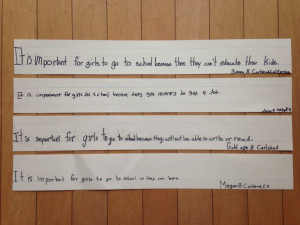 It is important for girls to go to school because then they can't educate their kids.
Carlsbad California
It is important for girls to school because they get money to get a Job.
It is important for girls to go to school because they will not be able to write or read.
age 8 Carlsbad
It is important for girls to go to school so they can learn.
Megan 8 Carlsbad, CA